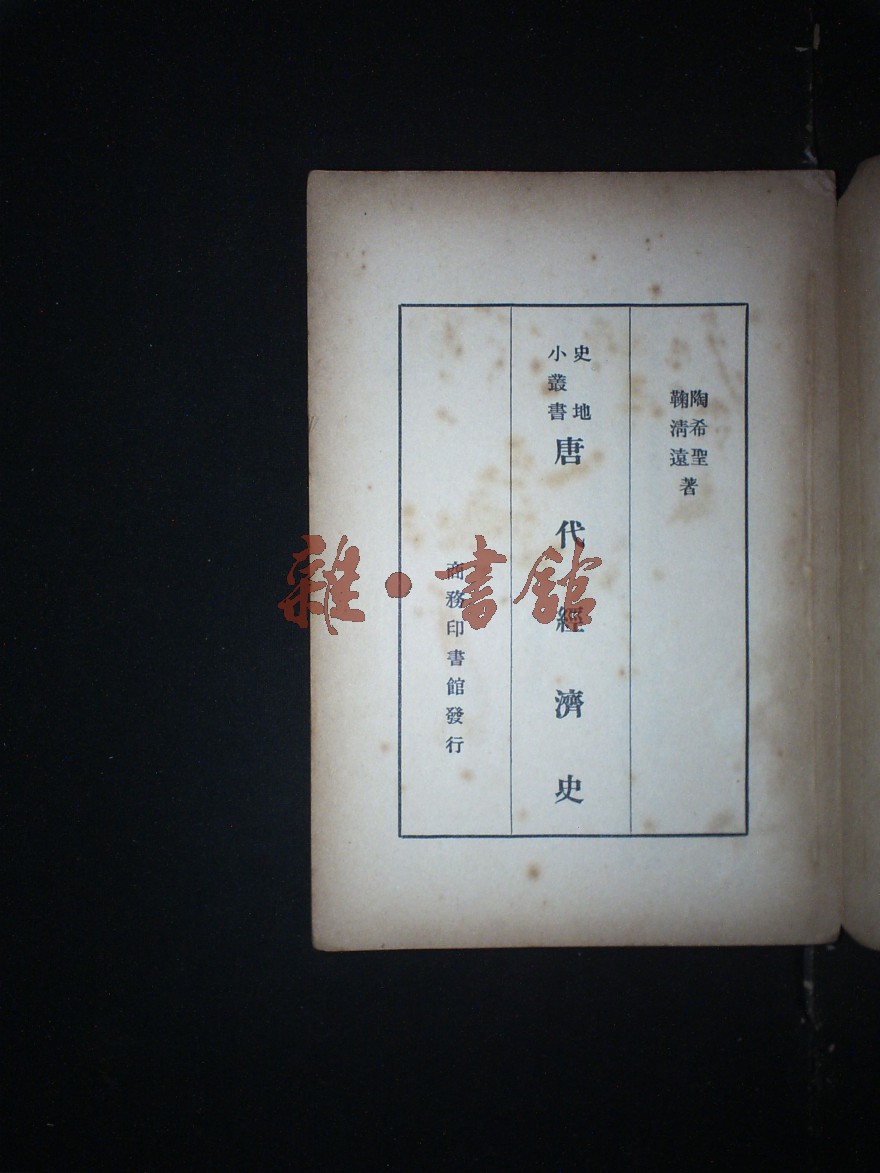 陶希聖
鞠淸遠
著
史地
小叢書
唐代經濟史
商務印書館發行
雜·書館